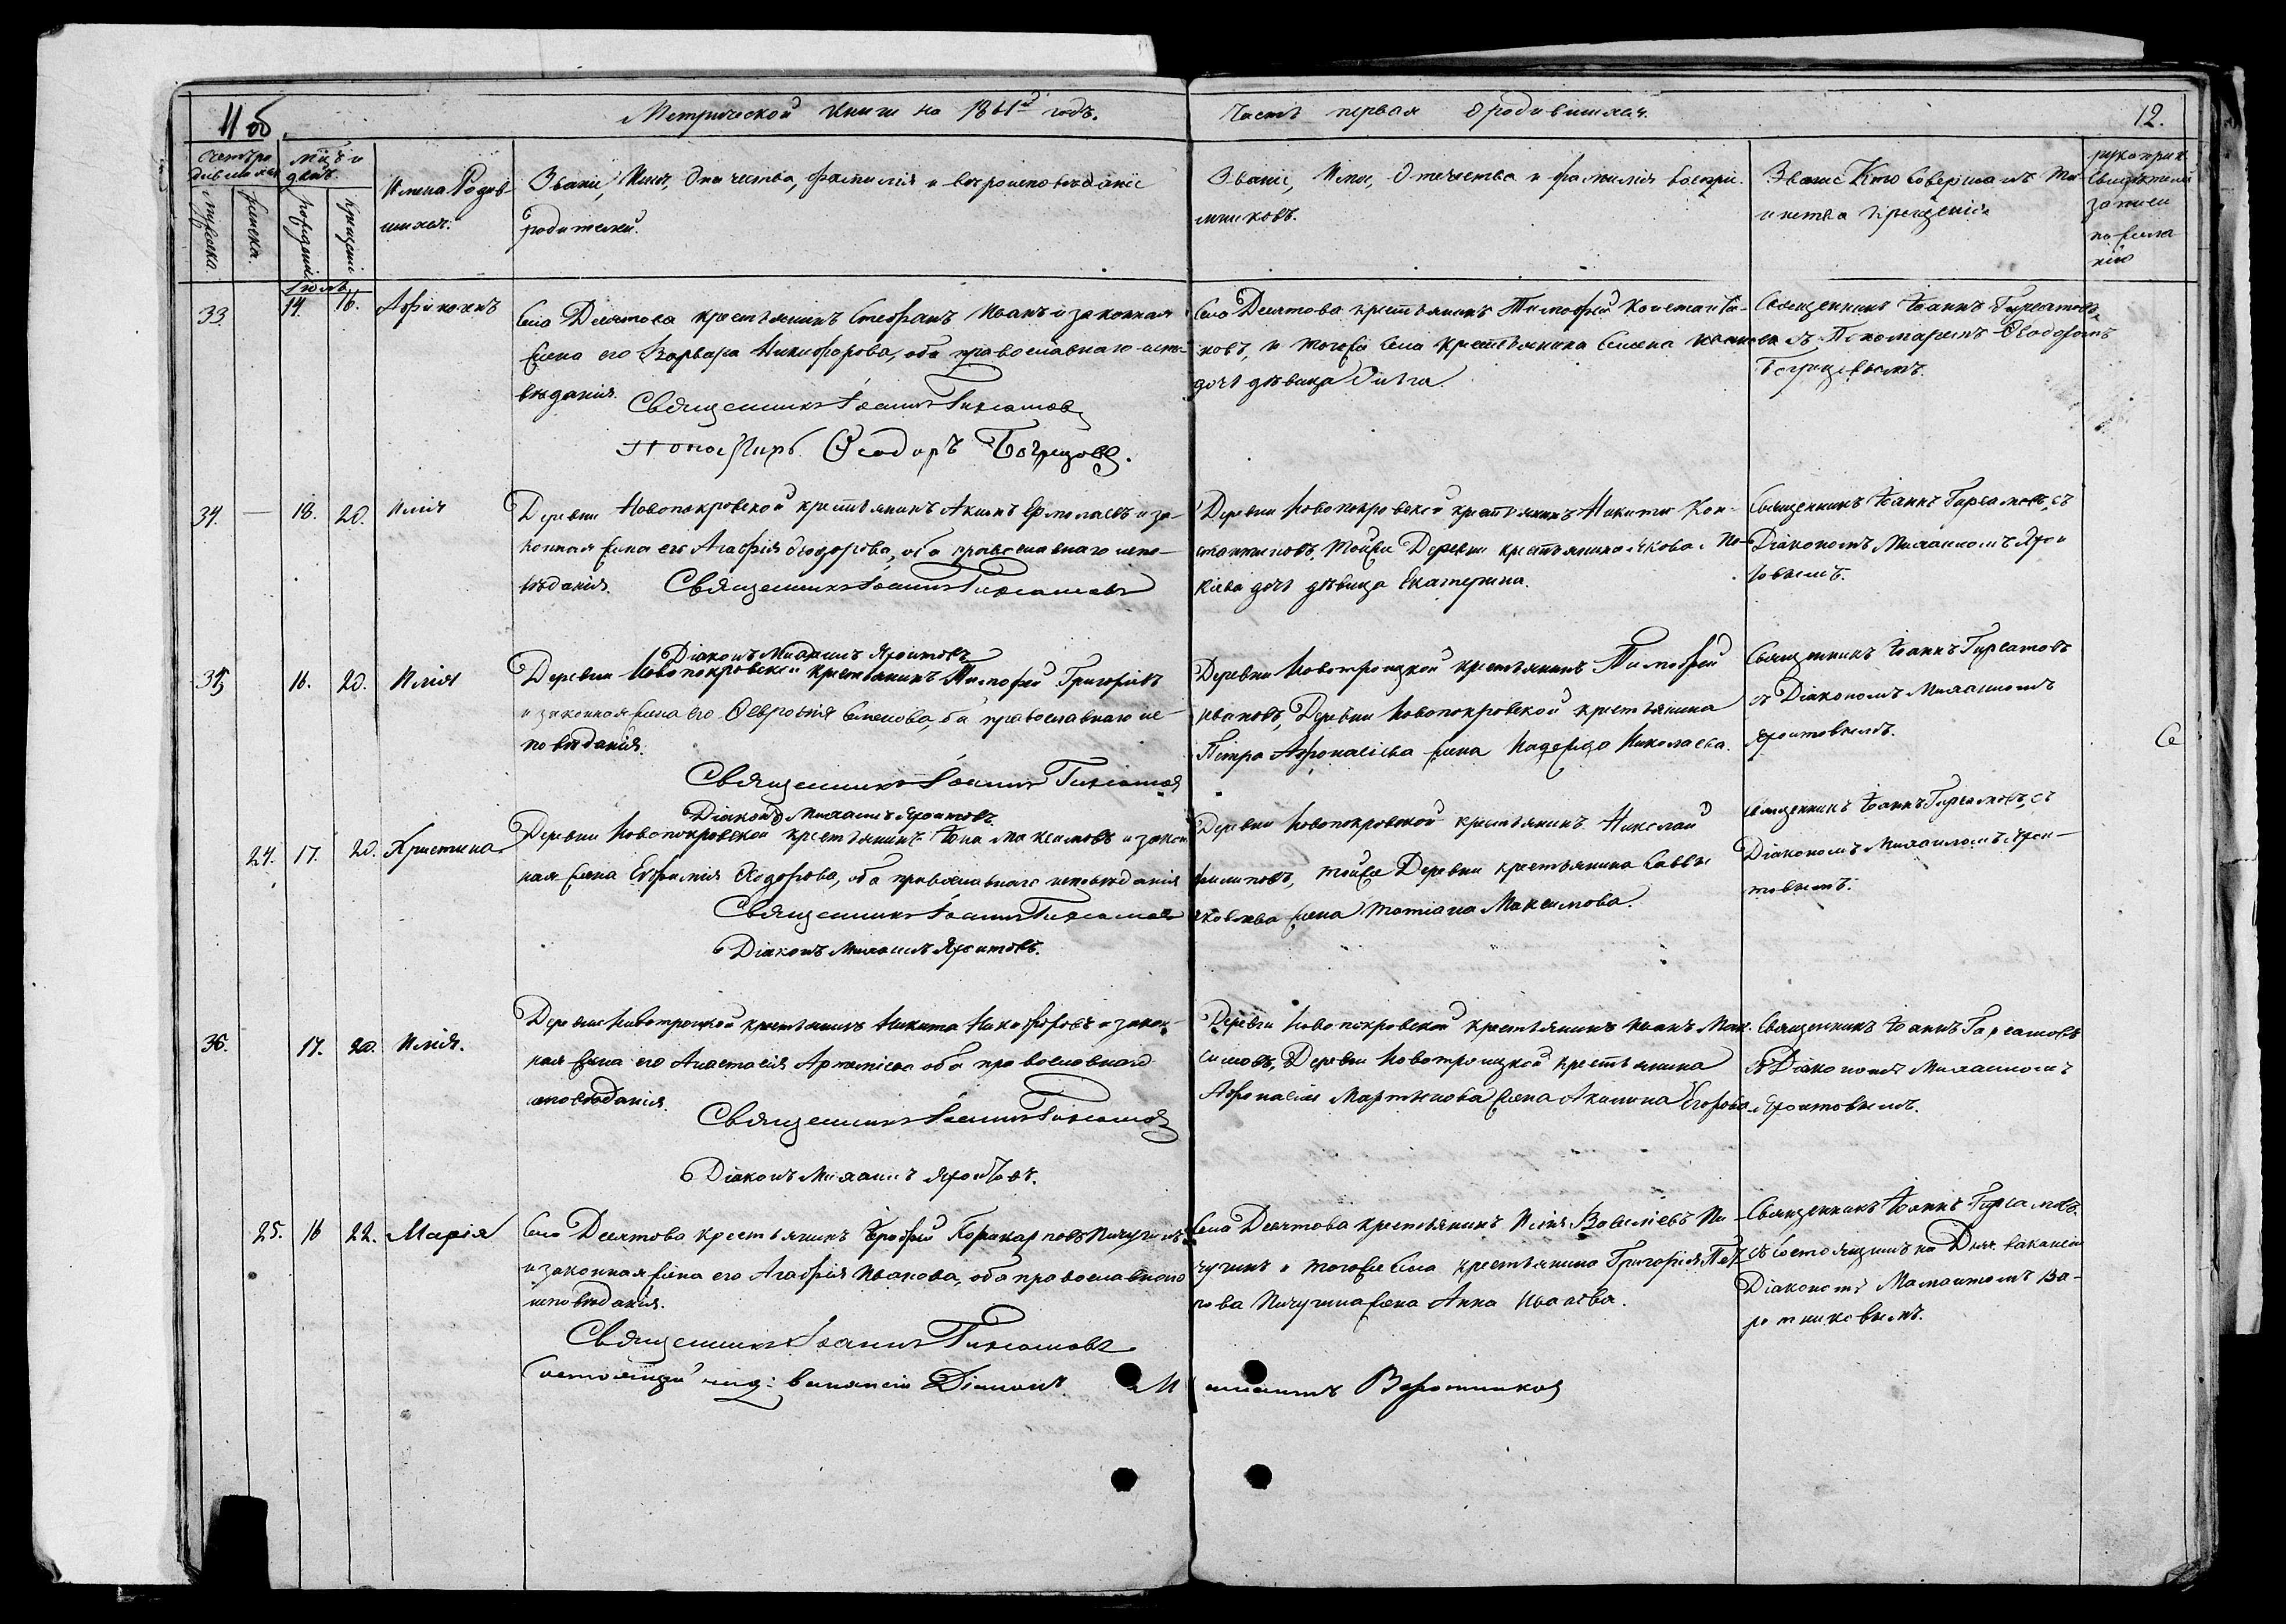 11 об.
Метрической книги на 1861й годъ.
Часть первая о родившихся.
12.
Счетъ ро
дившихся
мужеска.
женска.
мцъ и
день
рожденія
крещенія
Имена Родив
шихся.
Званіе, Имя, Отчество, фамилія и вѣроисповѣданіе
родителей.
Званіе, Имя, Отчество и фамилія воспріе
мниковъ.
Званіе Кто совершалъ та
инство крещенія
рукоприк
свидѣтелей
записи
по жела
нію
Іюль
33. 14. 16.
Села Десятова крестьянинъ Стефанъ Иванъ и законная
жена его Варвара Никифорова, оба православнаго испо-
вѣданія.
Священникъ Іоаннъ
Пономарь Ѳеодоръ
Села Десятова крестьянинъ Тимофей Константи-
новъ, и тогоже села крестьянина Семена
дочь дѣвица
Священникъ Іоаннъ
съ Пономаремъ Ѳеодоромъ
34. — 18. 20. Илія
Деревни Новопокровской крестьянинъ Акимъ Ермолаевъ и за-
конная жена его Агафія Ѳеодорова, оба православнаго испо-
вѣданія.
Священникъ Іоаннъ
Діаконъ Михаилъ Яхонтовъ
Деревни Новопокровской крестьянинъ Никита Кон-
стантиновъ, тойже Деревни крестьянина Якова
дочь дѣвица Екатерина.
Священникъ Іоаннъ съ
Діакономъ Михаиломъ Яхон
товымъ.
35 16. 20. Илія
Деревни Новопокровской крестьянинъ Тимофей Григорьевъ
и законная жена его Ѳевронія Семенова, оба православнаго ис-
повѣданія.
Священникъ Іоаннъ
Діаконъ Михаилъ Яхонтовъ.
Деревни Новотроицкой крестьянинъ Тимофей
Ивановъ, Деревни Новопокровской крестьянина
Петра Афонасіева жена Надежда Николаева.
Священникъ Іоаннъ
съ Діакономъ Михаиломъ
Яхонтовымъ.
24. 17. 20. Христина
Деревни Новопокровской крестьянинъ Іона Максимовъ и закон
ная жена Евфимія Ѳеодорова, оба православнаго исповѣданія
Священникъ Іоаннъ
Діаконъ Михаилъ Яхонтовъ.
Деревни Новопокровской крестьянинъ Николай
Филиповъ, тойже Деревни крестьянина Саввы
Яковлева жена Татіана Максимова.
священникъ Іоаннъ съ
Діакономъ Михаиломъ Яхон-
товымъ.
36. 17. 20. Илія.
Деревни Новотроицкой крестьянинъ Никита Никифоровъ и закон-
ная жена его Анастасія Артемьева оба православнаго
исповѣданія.
Священникъ Іоаннъ
Діаконъ Михаилъ Яхонтовъ.
Деревни Новопокровской крестьянинъ Иванъ Мак-
симовъ, Деревни Новотроицкой крестьянина
Афонасія Мартынова жена Акилина Егорова.
Священникъ Іоаннъ
съ Діакономъ Михаиломъ
Яхонтовымъ.
25. 16 22. Марія
Села Десятова крестьянинъ Ерофей Поликарповъ Пичугинъ
и законная жена его Агафія Иванова, оба православнаго
исповѣданія.
Священникъ Іоаннъ
Состоящій на вакансіи Діаконъ Мамантъ Воротниковъ
Села Десятова крестьянинъ Илія Васильевъ Пи-
чугинъ и тогоже села крестьянина Григорія Пет
рова Пичугина жена Анна Иванова.
Священникъ Іоаннъ
съ состоящимъ на вакансіи
Діакономъ Мамантомъ Во-
ротниковымъ.